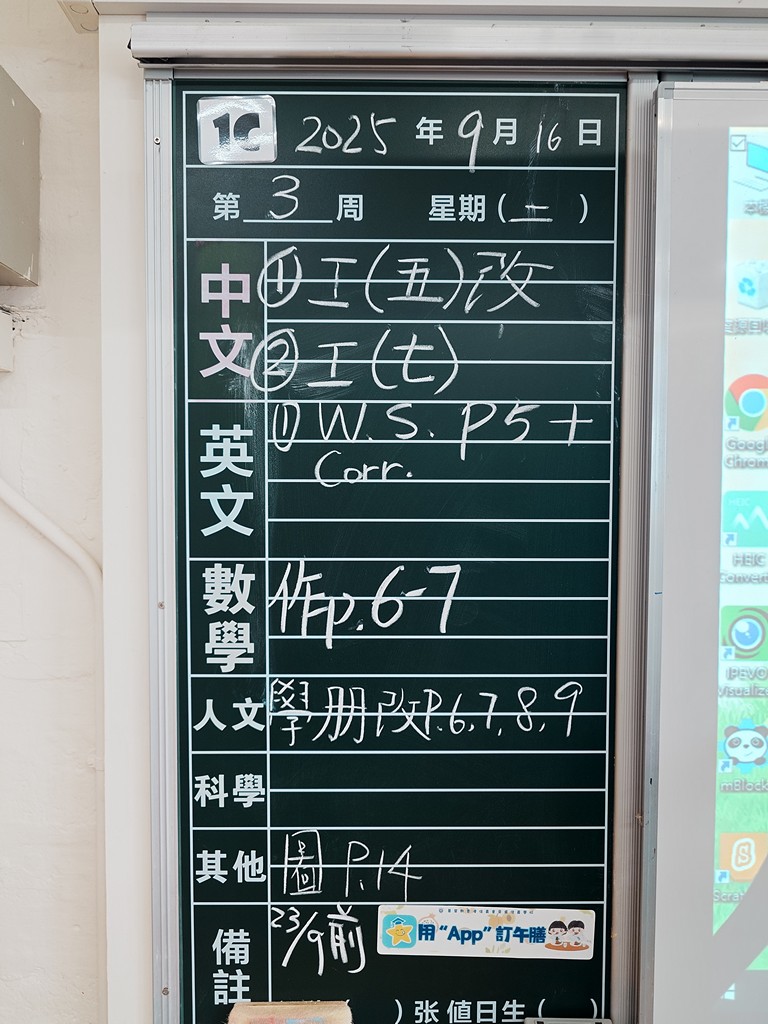 1C 2025 年 9 月 16 日
第 3 周 星期 (二)
中文 ① 工(五)改
② 工(七)
英文 ① W.S. P5 +
Corr.
數學 作p.6-7
人文 學册改P.6,7,8,9
科學
其他 圖 P.14
備註 23/9前
用“App”訂午膳
( )张 值日生 (
Google Chrome
HEIC
IPEVO
mBlock